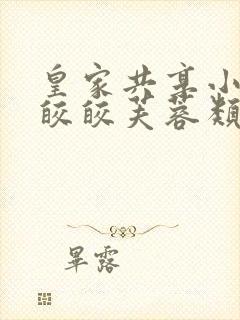 皇家共享小
皎皎芙蓉類
畢露